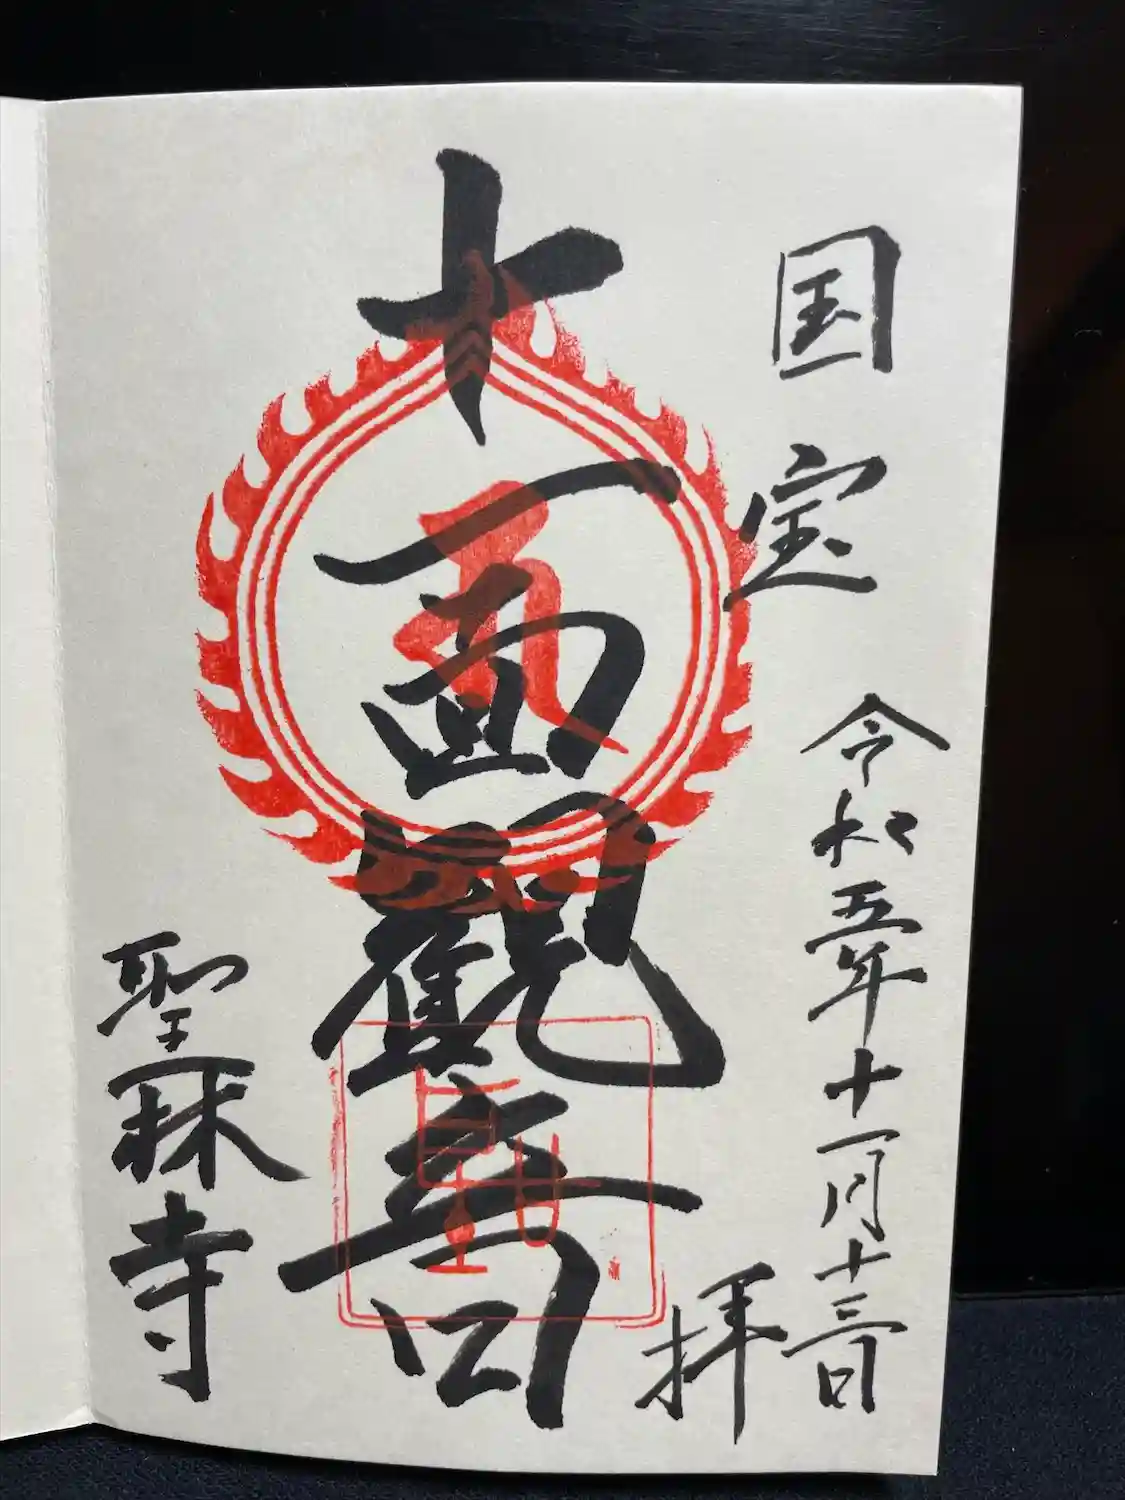 国宝
令和五年十一月十三日
拝
十一面觀音
聖林寺